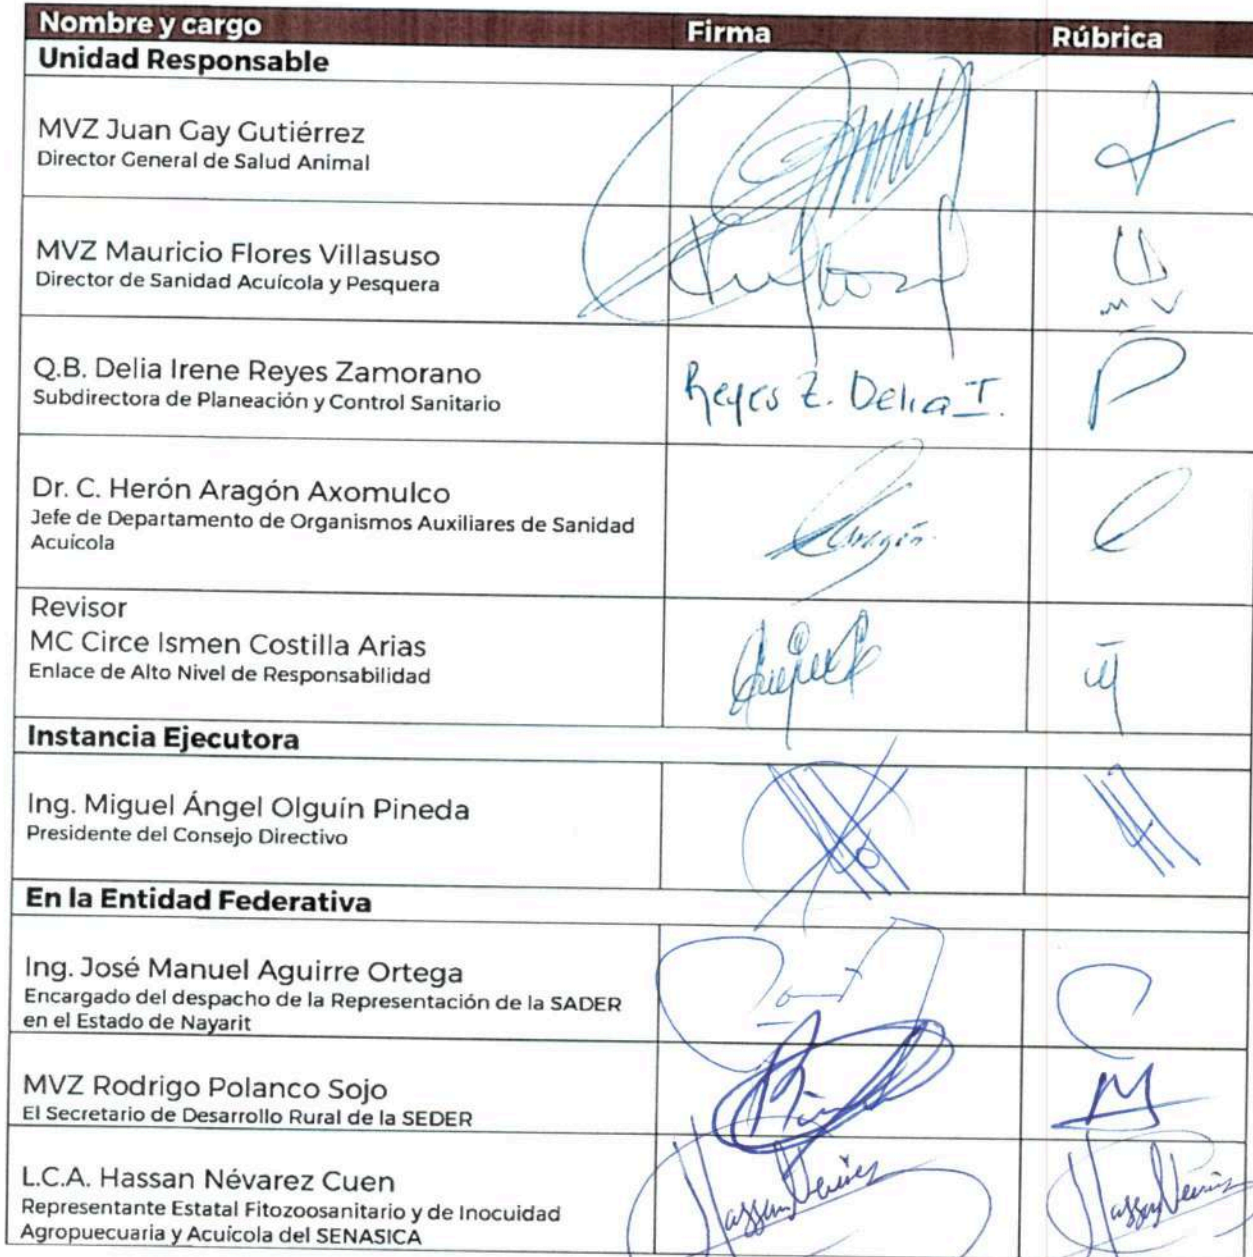 Nombre y cargo Firma Rúbrica
Unidad Responsable
MVZ Juan Gay Gutiérrez
Director General de Salud Animal
MVZ Mauricio Flores Villasuso
Director de Sanidad Acuícola y Pesquera
M V
Q.B. Delia Irene Reyes Zamorano
Subdirectora de Planeación y Control Sanitario
Reyes Z. Delia I.
Dr. C. Herón Aragón Axomulco
Jefe de Departamento de Organismos Auxiliares de Sanidad
Acuícola
Revisor
MC Circe Ismen Costilla Arias
Enlace de Alto Nivel de Responsabilidad
Instancia Ejecutora
Ing. Miguel Ángel Olguín Pineda
Presidente del Consejo Directivo
En la Entidad Federativa
Ing. José Manuel Aguirre Ortega
Encargado del despacho de la Representación de la SADER
en el Estado de Nayarit
MVZ Rodrigo Polanco Sojo
El Secretario de Desarrollo Rural de la SEDER
L.C.A. Hassan Névarez Cuen
Representante Estatal Fitozoosanitario y de Inocuidad
Agropuecuaria y Acuícola del SENASICA